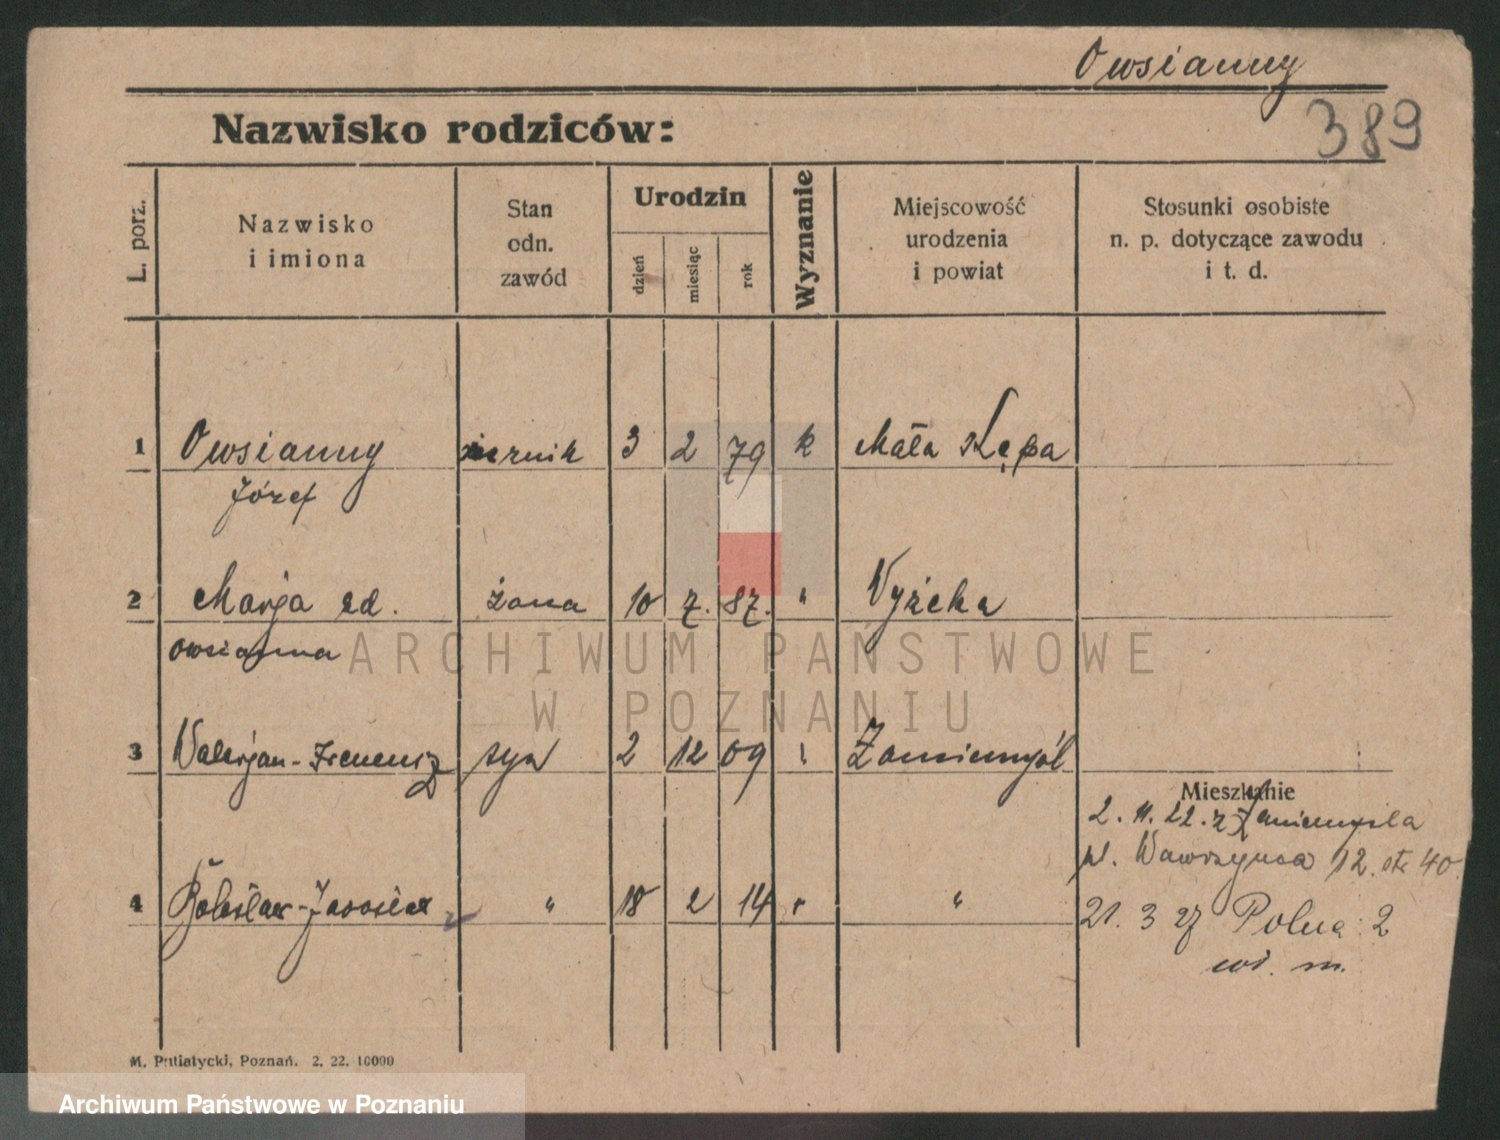 Owsianny
389
Nazwisko rodziców:
L. porz.
Nazwisko
i imiona
Stan
odn.
zawód
Urodzin
dzień
miesiąc
rok
Wyznanie
Miejscowość
urodzenia
i powiat
Stosunki osobiste
n. p. dotyczące zawodu
i t. d.
1 Owsianny 3 2 79 k Mała Kępa
Józef
2 Marja zd. żona 10 7. 87. " Wyrzeka
owsianna
3 Walerjan-Ireneusz syn 2 12 09 Zaniemyśl
Mieszkanie
2. 11. 22. z Zaniemyśla
pl. Wawrzynca 12. 40
4 Bolesław- " 18 2 14 "
21. 3 27 Polna 2
wł. m.
M. Putiatycki, Poznań. 2. 22. 10000
ARCHIWUM PAŃSTWOWE
W POZNANIU
Archiwum Państwowe w Poznaniu